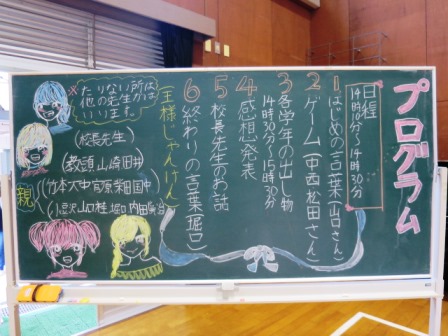 プログラム
日程
14時10分〜14時30分
1 はじめの言葉(山口さん)
2 ゲーム(中西松田さん)
3 各学年の出し物
14時30分〜15時30分
4 感想発表
5 校長先生のお話
6 終わりの言葉(堀口)
王様じゃんけん
※たりない所は
他の先生がは
いいます。
(校長先生)
(教頭 山崎 田井)
親
(竹本 大中 宮原 柴田 田中)
山口 桂 堀口 内田